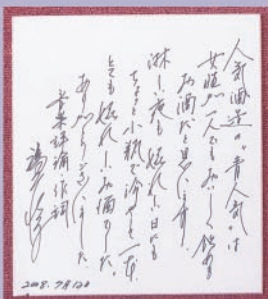 人気酒造の“青人気”は
女性が一人でもおいしく飲める
お酒だと思います。
淋しい夜も 疲れた日にも
ちょっと小瓶で冷やして一本
とても 疲れしお酒でした。
ありがとうございました。
音楽評論・作詞
2008. 7月12日